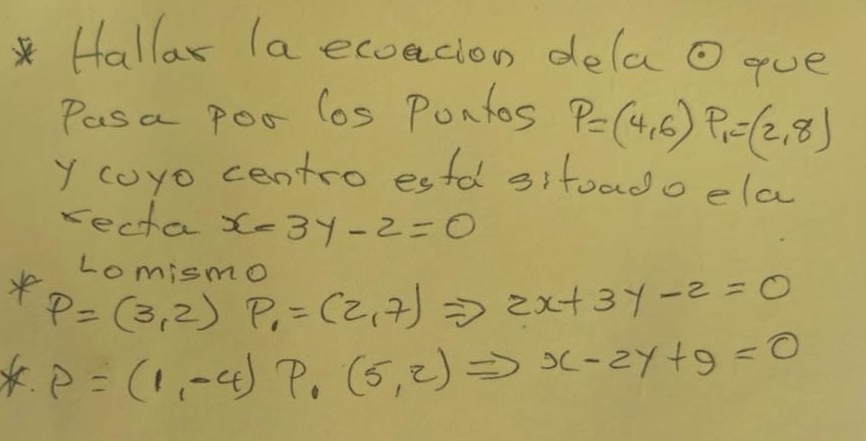 * Hallar la ecuacion dela ⊙ que
Pasa por los Puntos P=(4,6) P₁=(2,8)
Y cuyo centro está situado e la
recta x-3y-2=0
* Lo mismo
P=(3,2) P₁=(2,7) ⇒ 2x+3y-2=0
*. P=(1,-4) P₁ (5,2) ⇒ x-2y+9=0